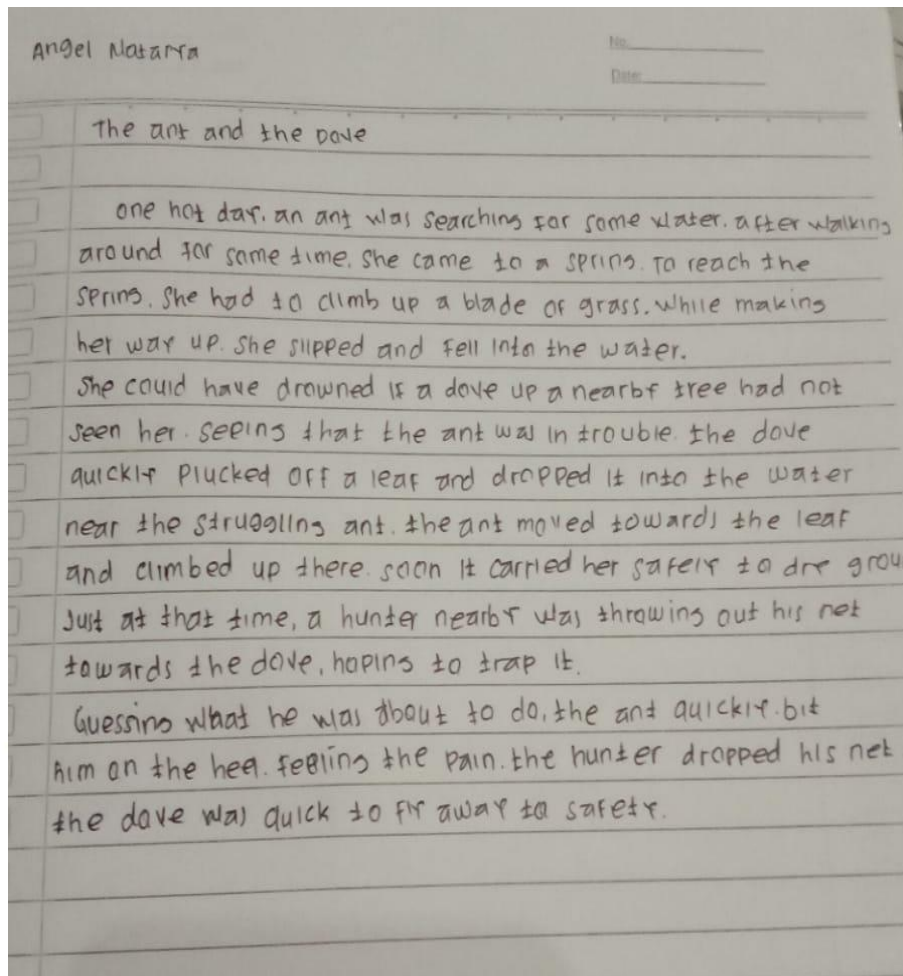 Angel Natarra
No:
Date:
The ant and the Dove
one hot day. an ant was searching for some water. after walking
around for some time. She came to a spring. To reach the
spring. She had to climb up a blade of grass. While making
her way up. She slipped and fell into the water.
She could have drowned if a dove up a nearby tree had not
seen her. seeing that the ant was in trouble. the dove
quickly plucked off a leaf and dropped it into the water
near the struggling ant. the ant moved towards the leaf
and climbed up there. soon it carried her safely to dry grou
Just at that time, a hunter nearby was throwing out his net
towards the dove, hoping to trap it.
Guessing what he was about to do, the ant quickly. bit
him on the heel. feeling the pain. the hunter dropped his net
the dove was quick to fly away to safety.